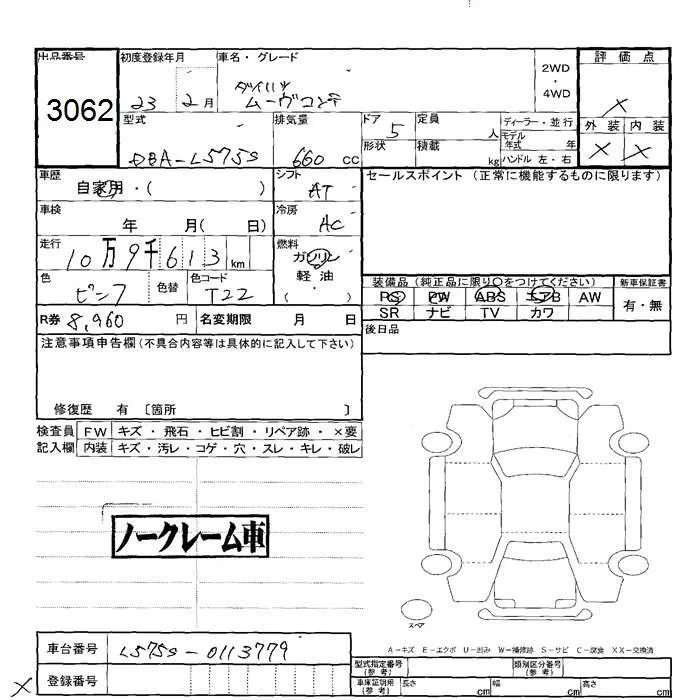 出品番号 初度登録年月 車名・グレード 2WD・4WD 評価点
3062 23 2月 ダイハツ ムーヴコンテ ×
型式 排気量 ドア 定員 ディーラー・並行 外装 内装
DBA-L575S 660 cc 5 人 モデル年式 年 × ×
形状 積載 kg ハンドル 左・右
車歴 シフト セールスポイント (正常に機能するものに限ります)
自家用・( ) AT
車検 冷房
年 月( 日) AC
走行 燃料
10万9千613 km ガソリン
軽油
( )
色 色替 色コード 装備品 (純正品に限り○をつけてください) 新車保証書
ピンク T22 PS PW ABS エアB AW 有・無
SR ナビ TV カワ
R券 8,960 円 名変期限 月 日 後日品
注意事項申告欄(不具合内容等は具体的に記入して下さい)
修復歴 有 〔箇所 〕
検査員 FW キズ・飛石・ヒビ割・リペア跡・×要
記入欄 内装 キズ・汚レ・コゲ・穴・スレ・キレ・破レ
ノークレーム車
スペア
A-キズ E-エクボ U-凹み W-補修跡 S-サビ C-腐食 XX-交換済
車台番号 L575S-0113779 型式指定番号(参考) 類別区分番号(参考)
× 登録番号 車庫証明用(参考) 長さ cm 幅 cm 高さ cm